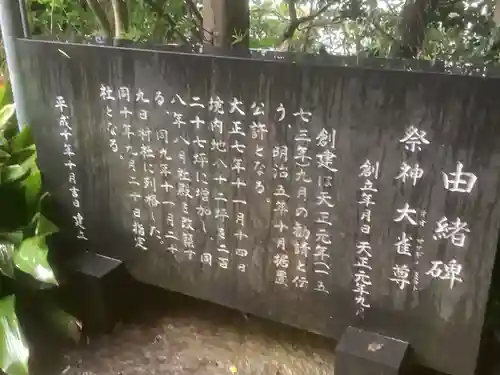 由緒碑
祭神 大雀尊
創立年月日 天正元年九月
創建は天正元年(一五
七三年)九月の勧請と伝
う、明治五年十月据置
公許となる。
大正七年十一月十四日
境内地八十二坪を二百
二十七坪に増加し、同
八年八月社殿を改築す
る。同九年十一月二十
九日村社に列格した。
同十年九月二十日指定
村社となる。
平成十年十月吉日 建立